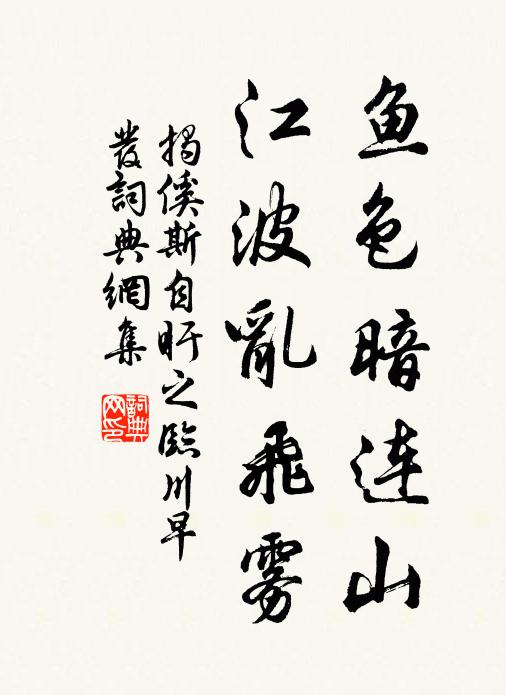 鱼色暗连山
江波亂飛雾
揭傒斯自盱之臨川早
發詞典網集
詞典
网印